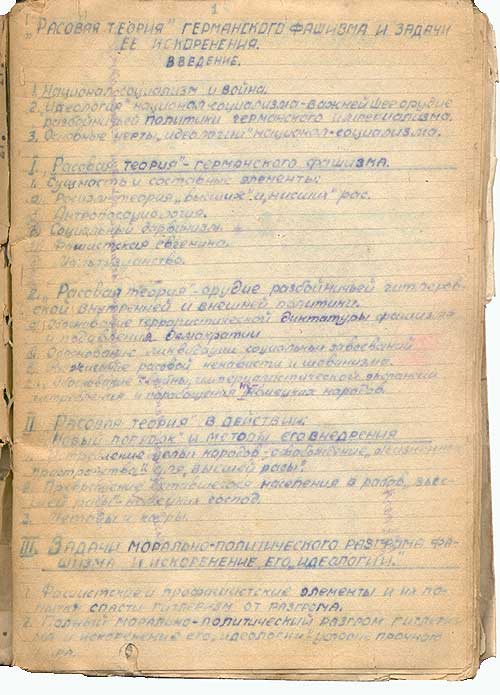 1
"РАСОВАЯ ТЕОРИЯ" ГЕРМАНСКОГО ФАШИЗМА И ЗАДАЧИ
ЕЕ ИСКОРЕНЕНИЯ.
ВВЕДЕНИЕ.
1. Национал-социализм и война.
2. "Идеология" национал-социализма - важнейшее орудие
разбойничьей политики германского империализма.
3. Основные черты "идеологии" национал-социализма.
I. "Расовая теория" - германского фашизма.
1. Сущность и составные элементы:
а. "теория" "высших" и "низших" рас.
б. Антропосоциология.
в. Социальный дарвинизм.
г. Фашистская евгеника.
д. Мальтузианство.
2. "Расовая теория" - орудие разбойничьей гитлеров-
ской внутренней и внешней политики.
а. Обоснование террористической диктатуры фашизма
и подавления демократии
б. Обоснование ликвидации социальных завоеваний
расовой ненависти и шовинизма.
Обоснование империалистической экспансии
и порабощения народов.
II РАСОВАЯ ТЕОРИЯ" В ДЕЙСТВИИ.
"Новый порядок" и методы его внедрения
целых народов - "жизненное
пространство" для "высшей расы".
2. Превращение оставшегося населения в рабов, "выс-
шей расы" господ.
3. Методы и кадры.
III. ЗАДАЧИ МОРАЛЬНО-ПОЛИТИЧЕСКОГО РАЗГРОМА ФА-
ШИЗМА И ИСКОРЕНЕНИЕ ЕГО "ИДЕОЛОГИИ".
1. Фашистские и профашистские элементы и их по-
пытки спасти гитлеризм от разгрома.
2. Полный морально-политический разгром гитлериз-
ма и искоренение его "идеологии" - условие прочного
мира.